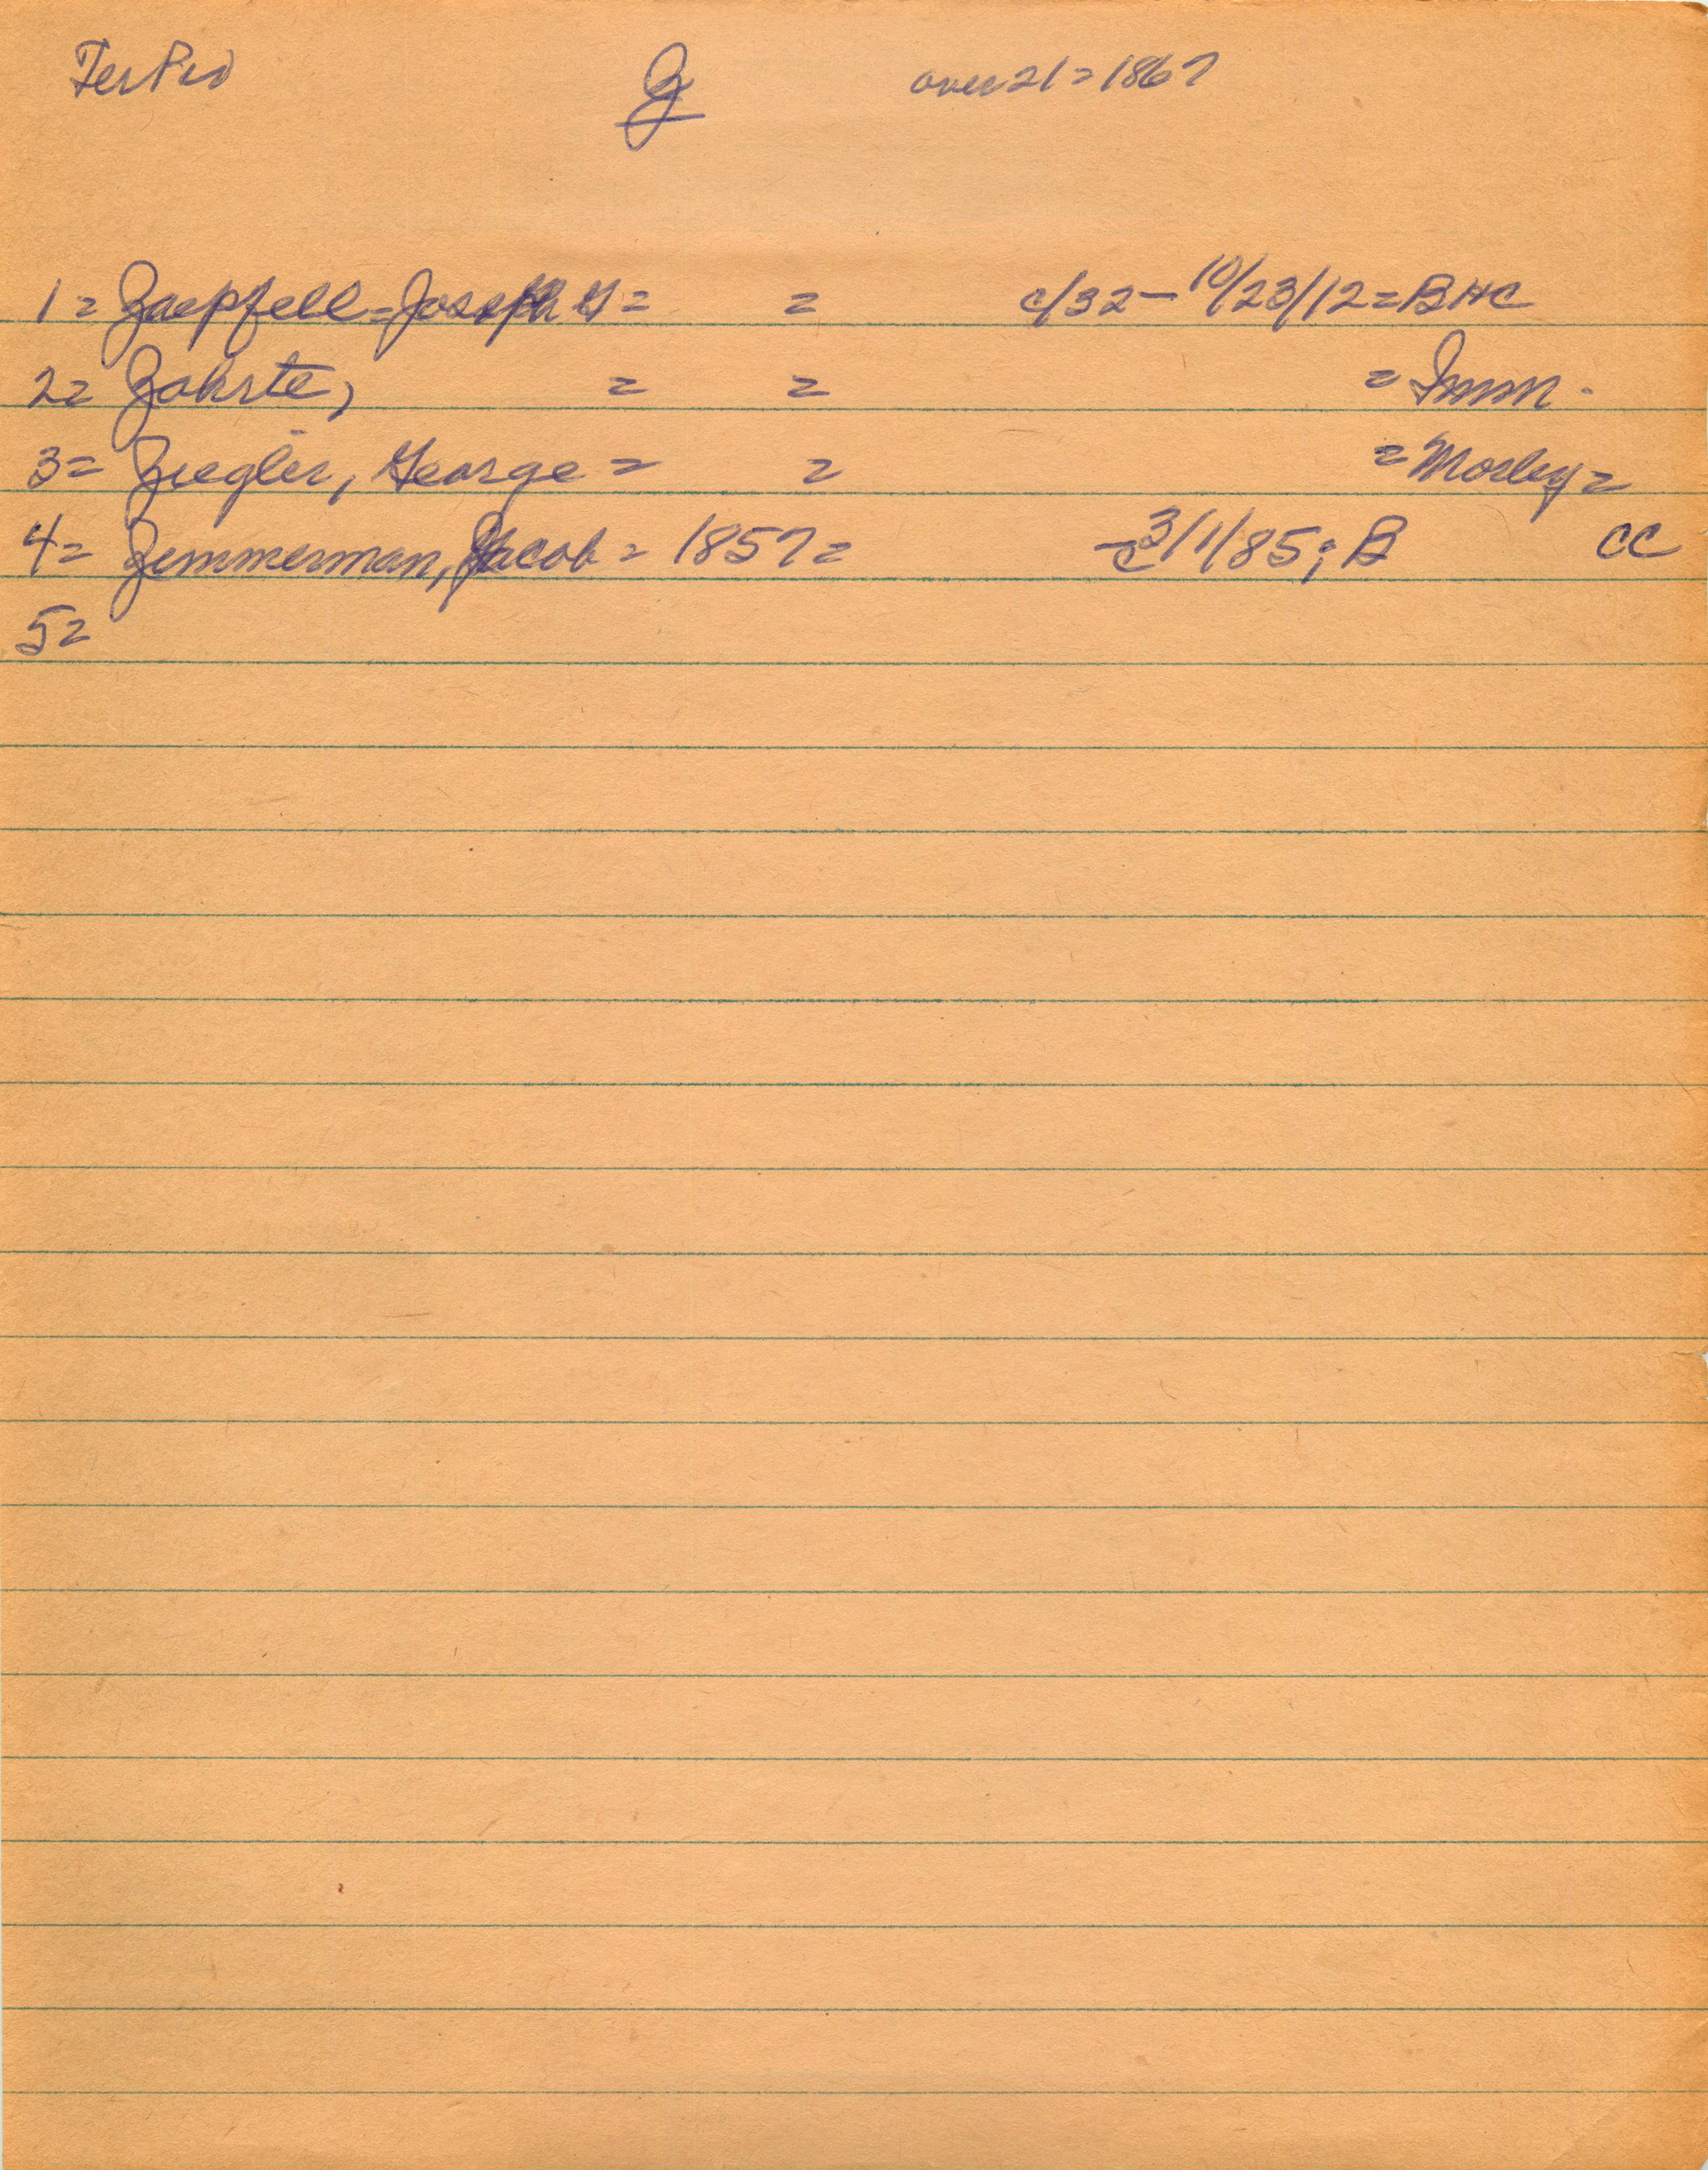 Ter Pio Z over 21 = 1867
1 = Zaepfell = Joseph G = = c/32 - 10/23/12 = BHC
2 = Zahrte, = = = Imm.
3 = Ziegler, George = = = Morley =
4 = Zimmerman, Jacob = 1857 = - c 3/1/85; B CC
5 =